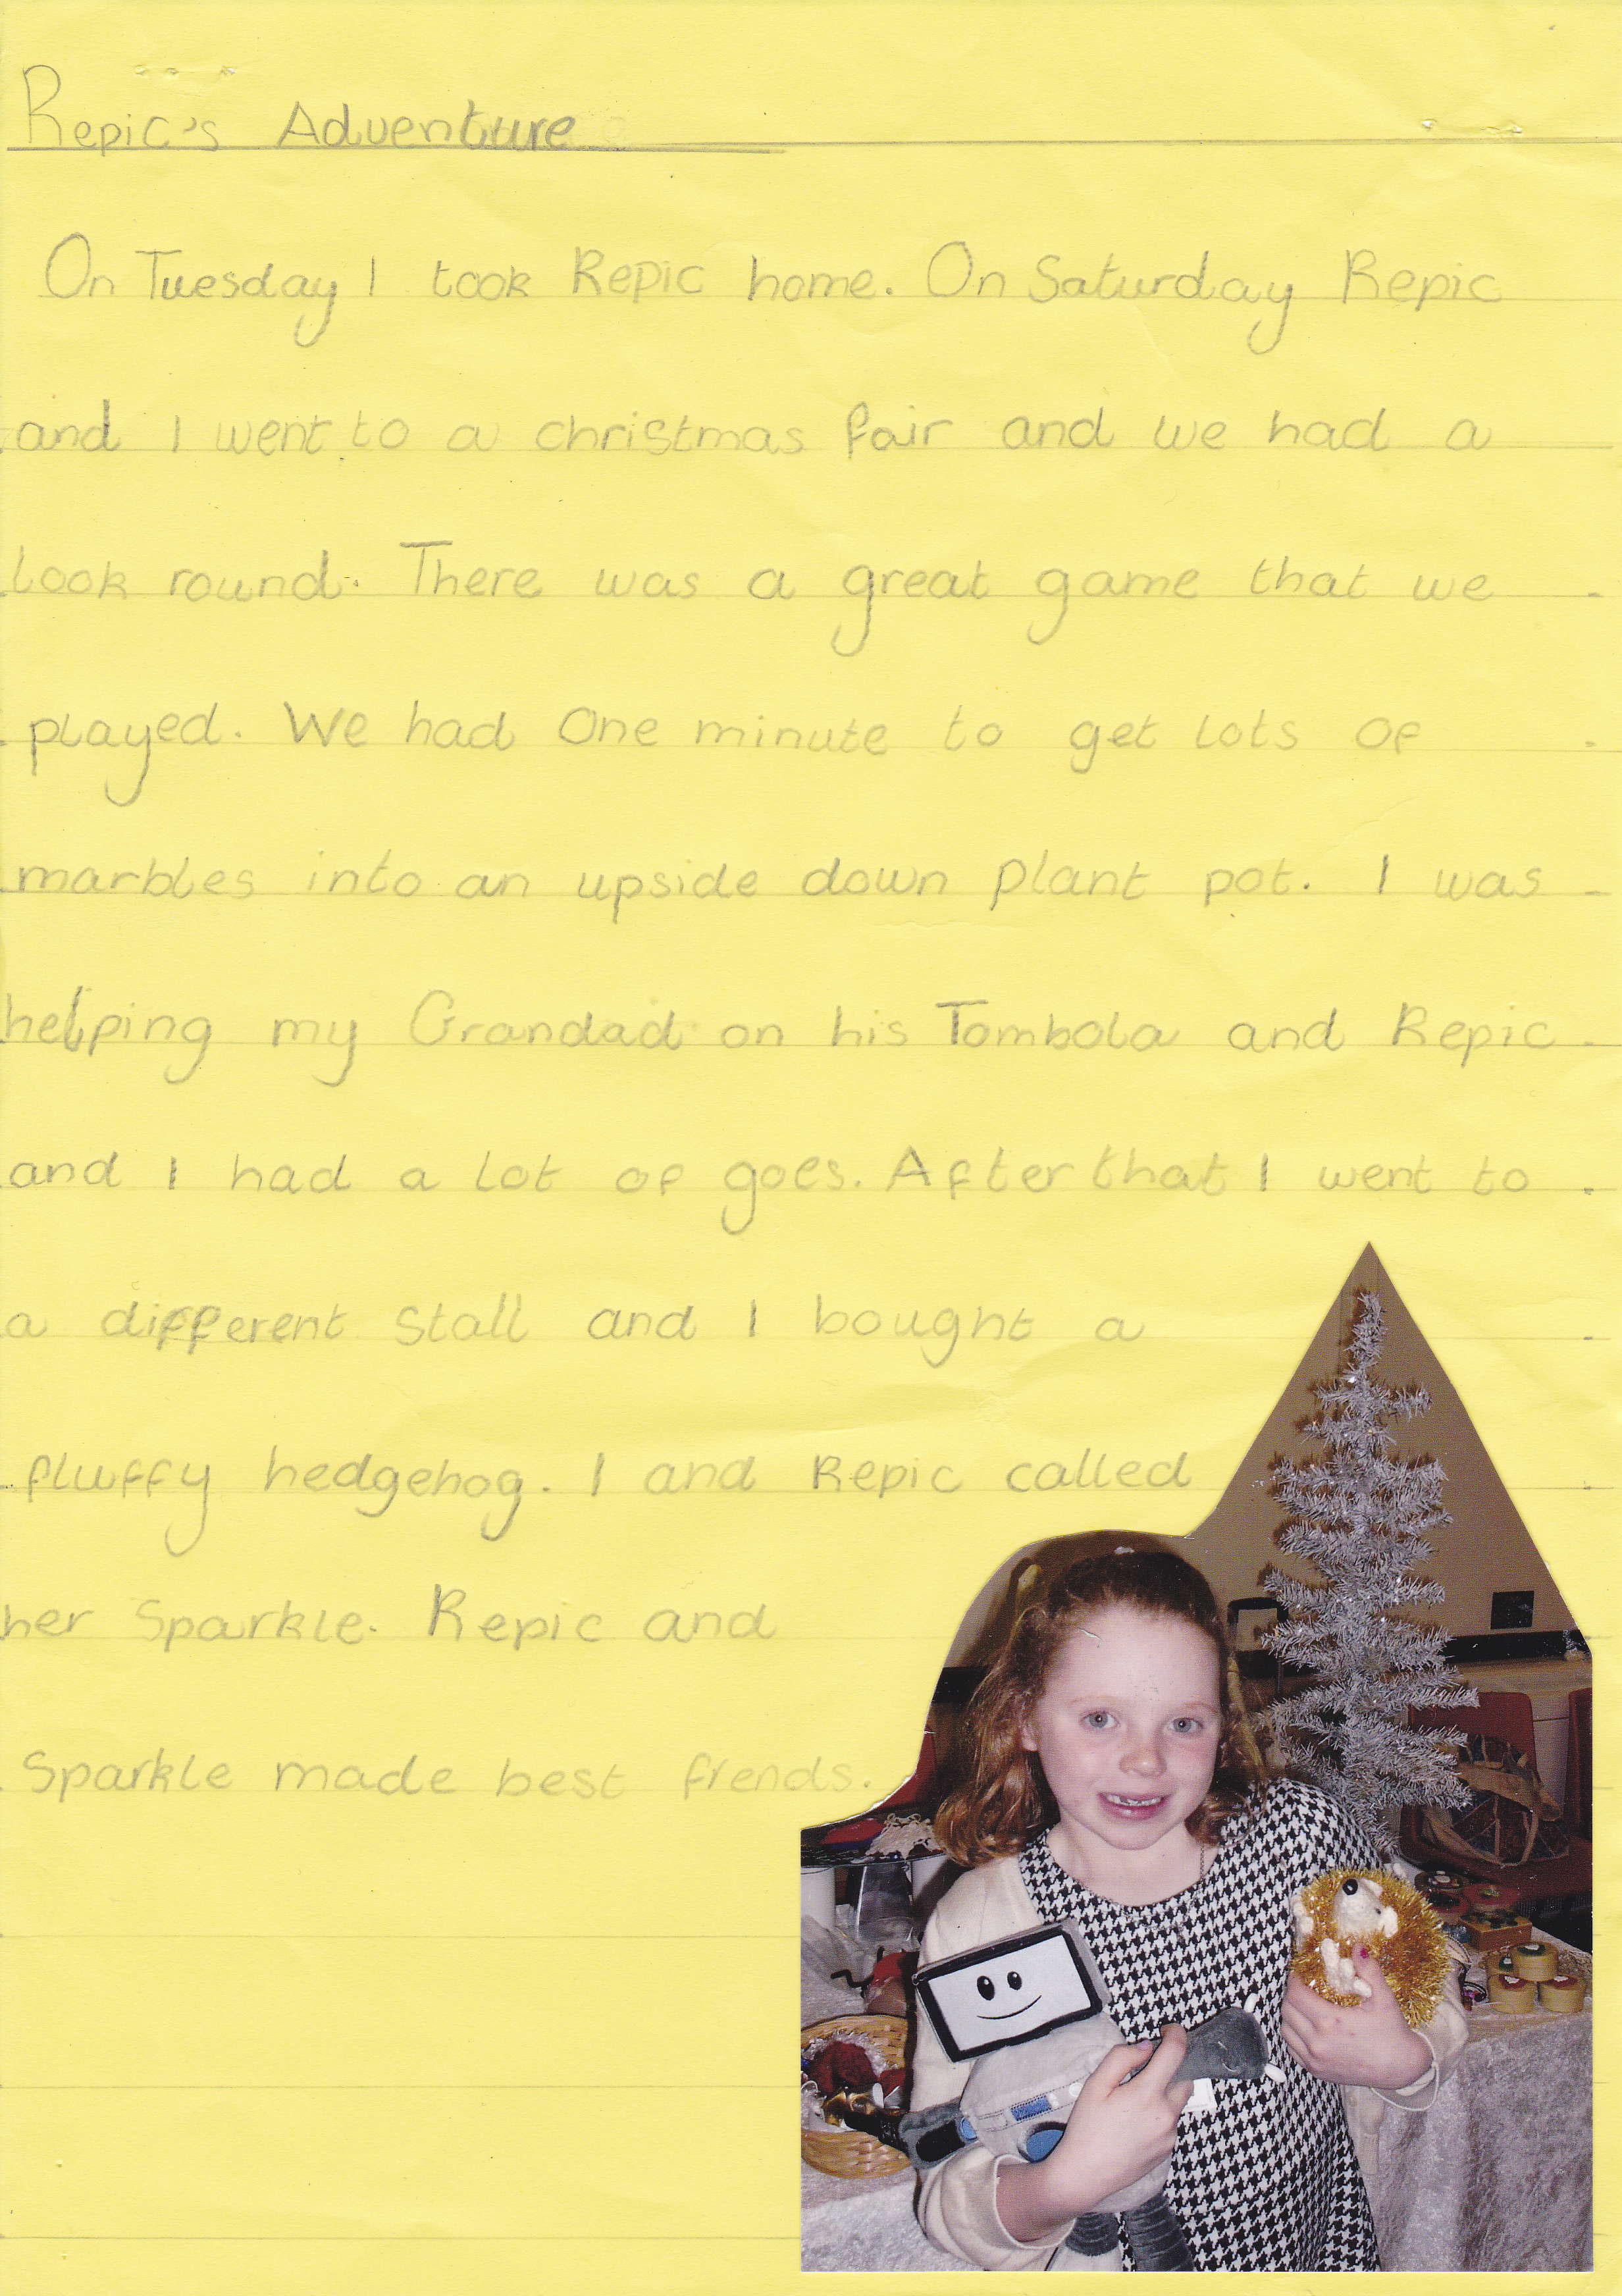 Repic's Adventure
On Tuesday I took Repic home. On Saturday Repic
and I went to a christmas fair and we had a
look round. There was a great game that we
played. We had one minute to get lots of
marbles into an upside down plant pot. I was
helping my Grandad on his Tombola and Repic
and I had a lot of goes. After that I went to
a different stall and I bought a
fluffy hedgehog. I and Repic called
her Sparkle. Repic and
Sparkle made best frends.